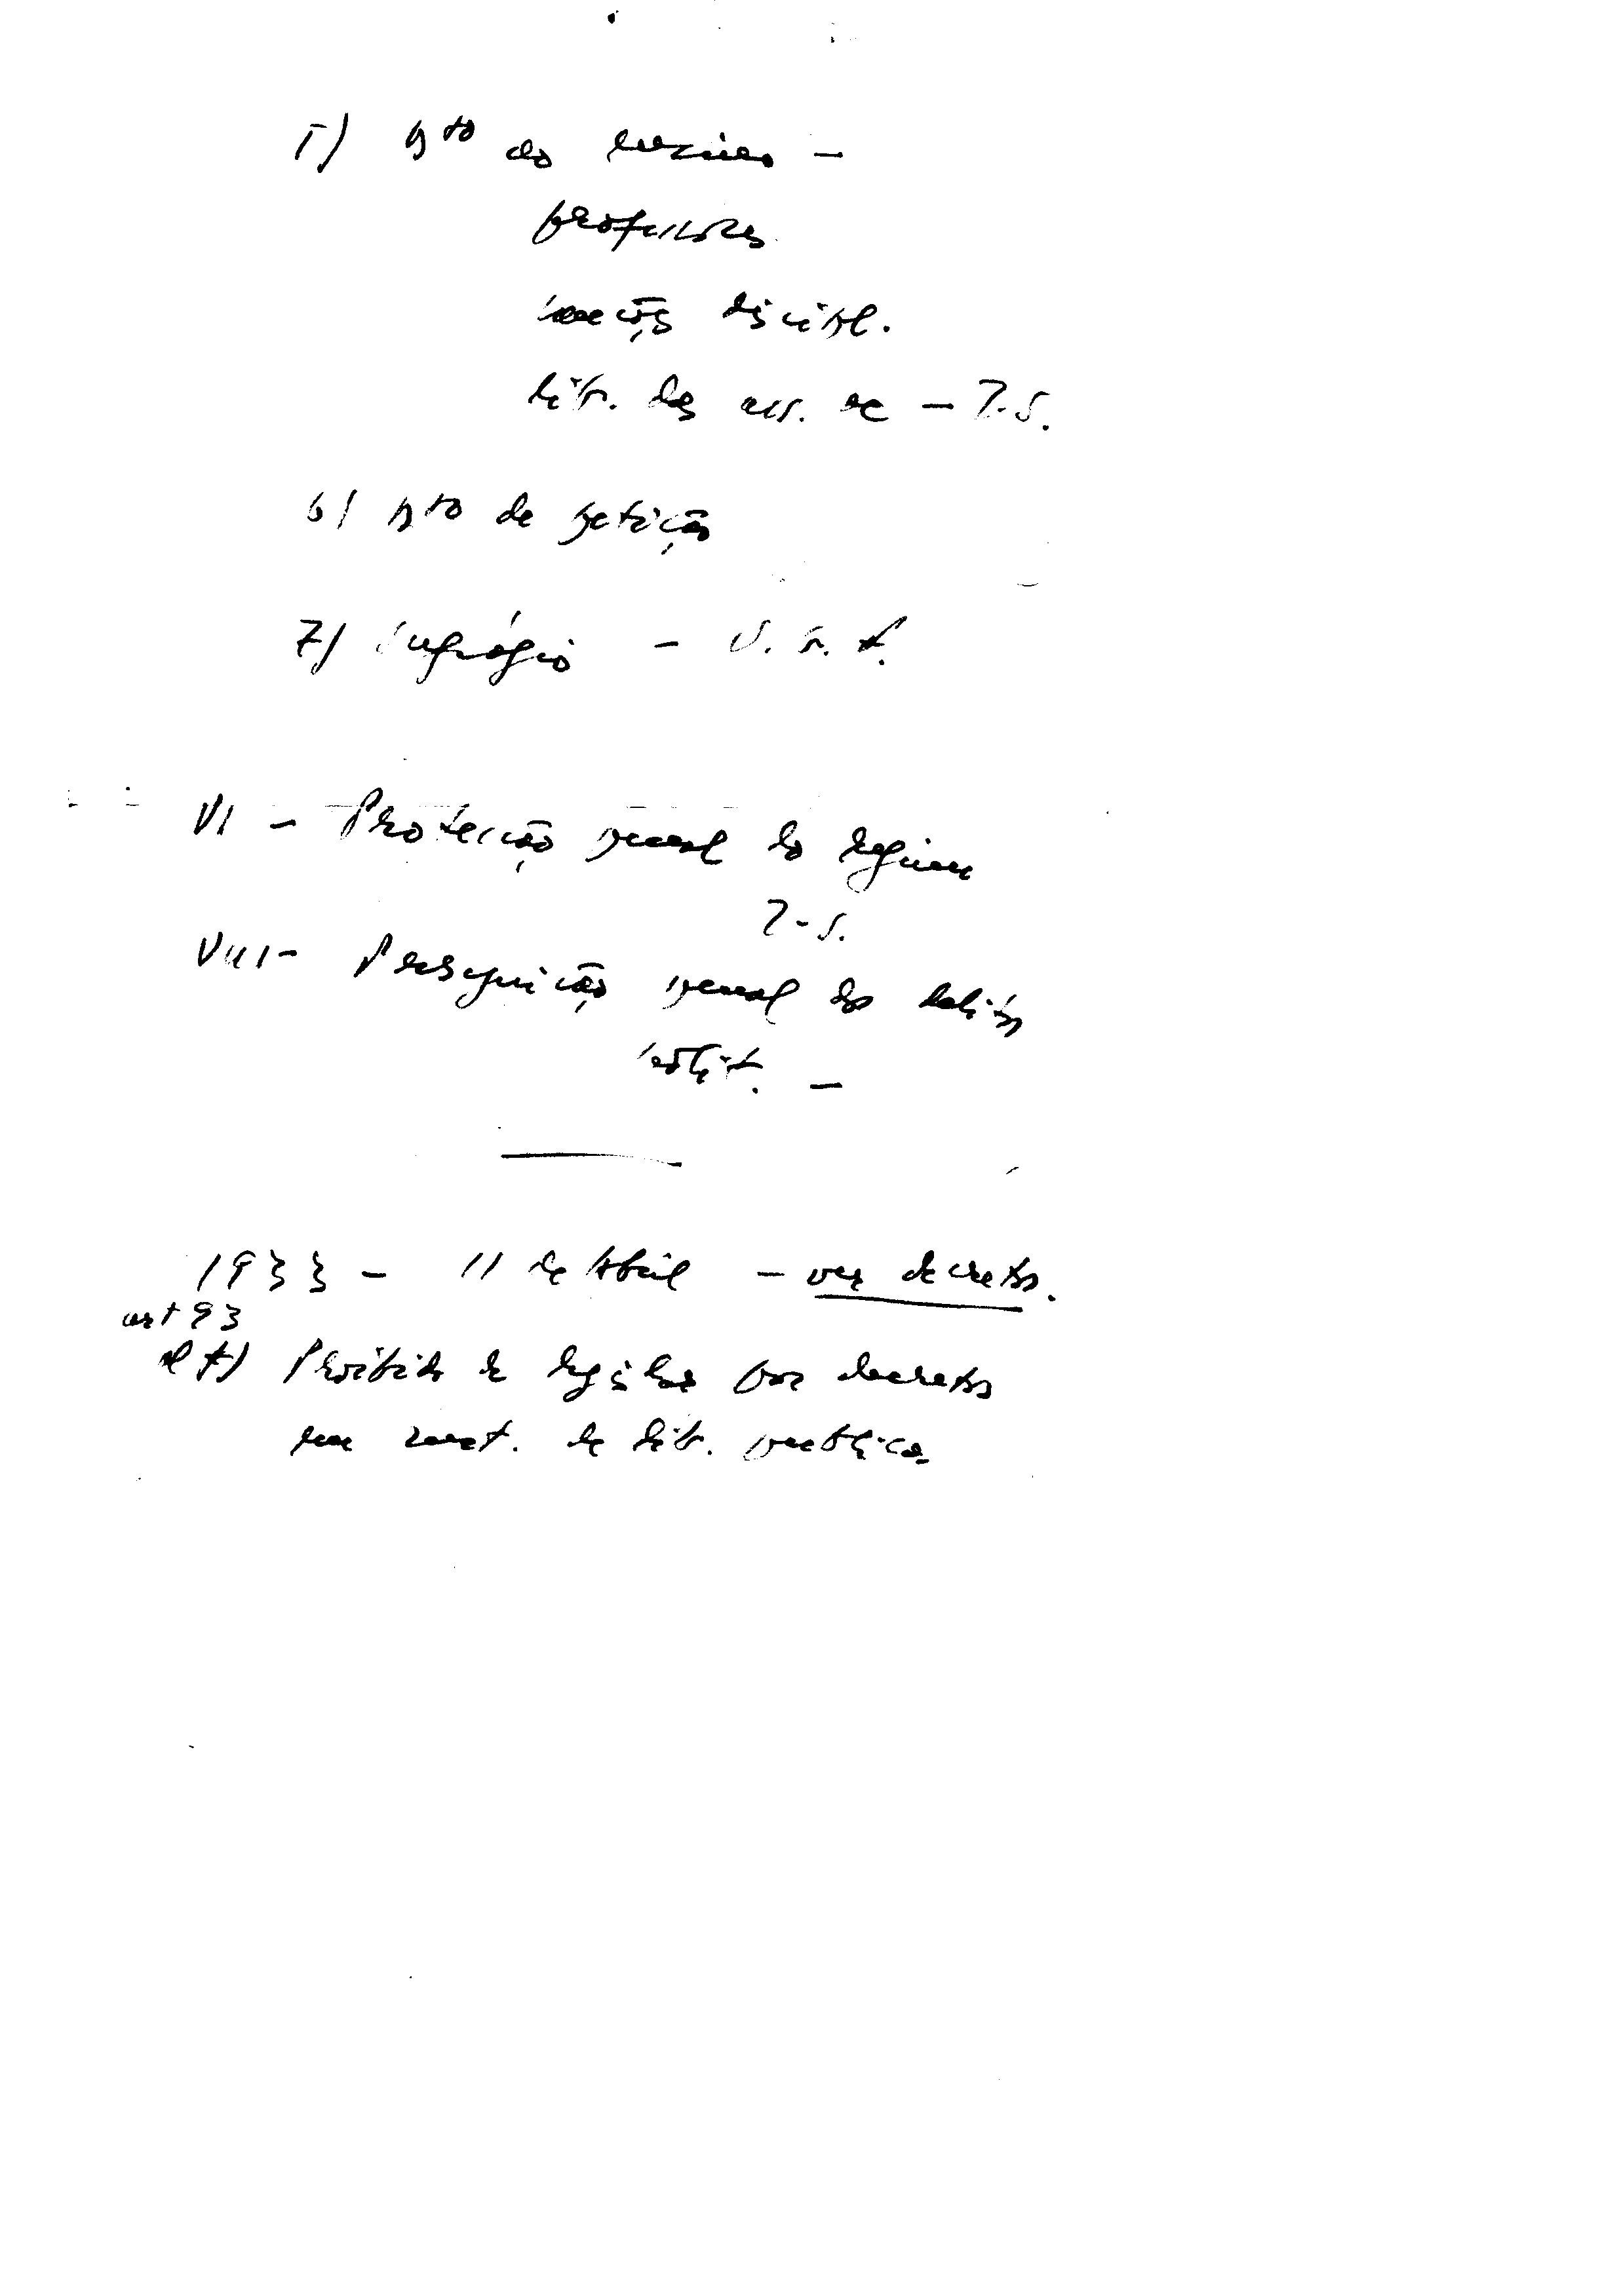 5) Dto ao ensino —
professores
sanções discipl.
lib. das ass. ac — T.S.
6) Dto de petição
7) Sufrágio — V. S. F.
VI — Protecção penal do regime
T.S.
VIII — Perseguição penal dos delitos
polit. —
1933 — 11 de Abril — ver decreto.
art 93
Proibido de legislar por decreto
em mat. de lib. publica